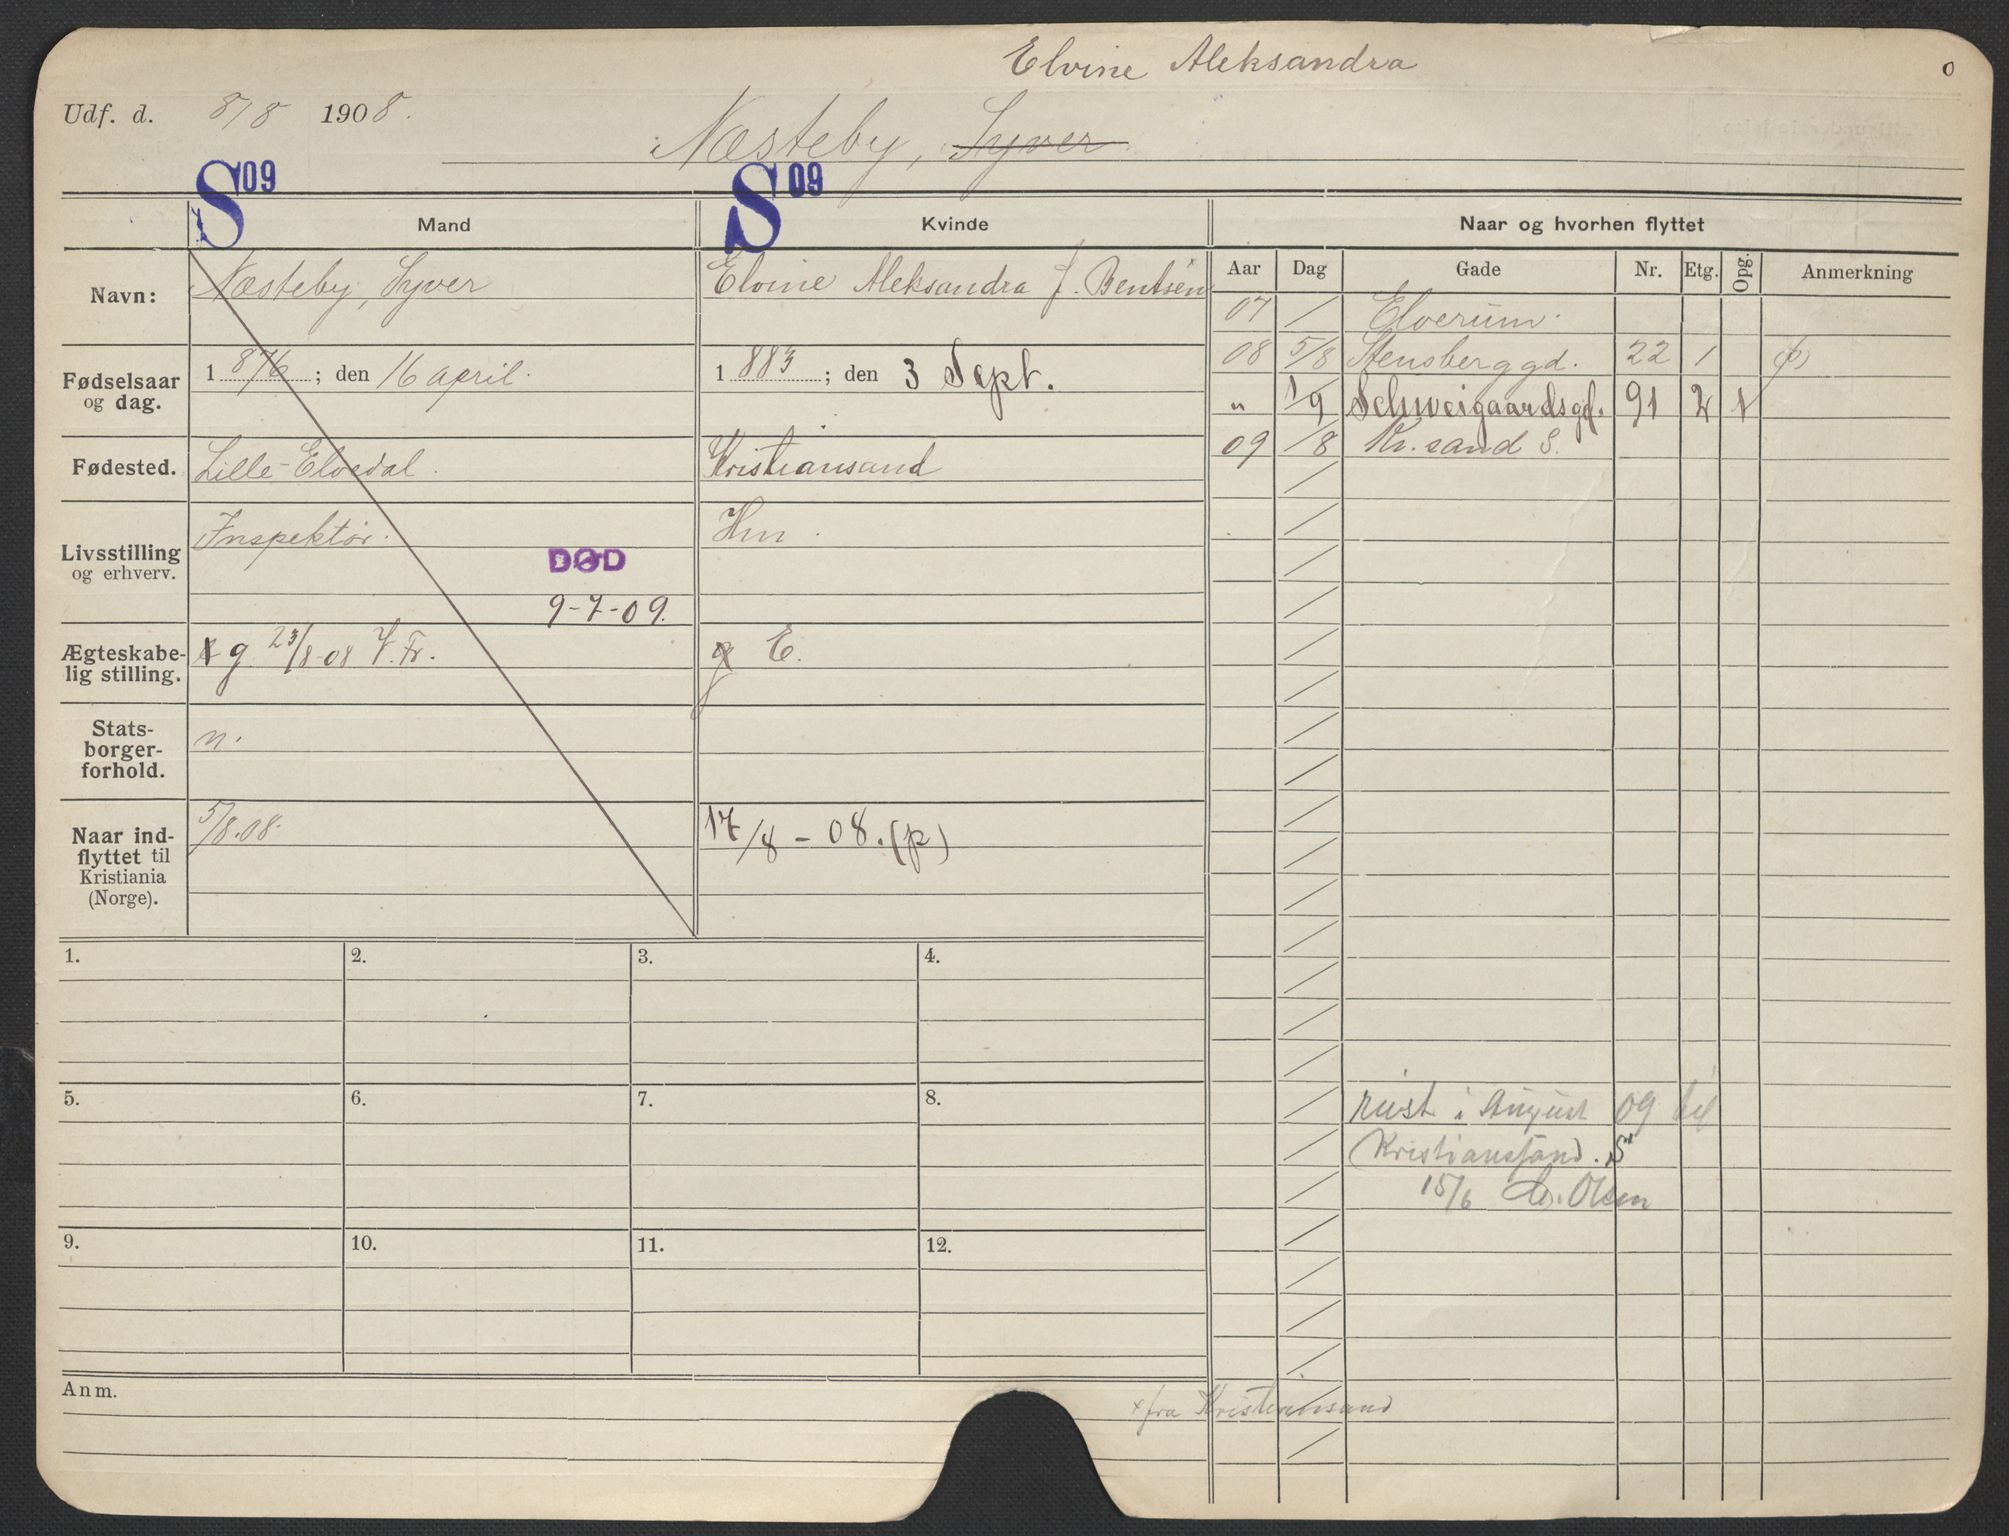 Elvine Aleksandra
0
Udf. d. 8/8 1908.
Næsteby, Syver
S 09 S 09
Mand Kvinde Naar og hvorhen flyttet
Navn: Næsteby, Syver Elvine Aleksandra f. Bentsen x
Aar Dag Gade Nr. Etg. Opg. Anmerkning
07 / Elverum.
08 5/8 Stensberggd. 22 1 (p)
" 1/9 Schweigaardsgd. 91 2 1
09 /8 Kr.sand S.
Fødselsaar og dag. 1876; den 16 april. 1883; den 3 Sept.
Fødested. Lille-Elvedal. Kristiansand
Livsstilling og erhverv. Inspektør. Hm.
DØD
9-7-09.
Ægteskabe-
lig stilling. g 23/8-08 V. Fr. g E.
Stats-
borger-
forhold. n.
Naar ind-
flyttet til
Kristiania
(Norge). 5/8.08. 17/8-08. (p)
1. 2. 3. 4.
5. 6. 7. 8.
reist i August 09 til
Kristianssand. S
15/6 Olsen
9. 10. 11. 12.
Anm.
x fra Kristiansand